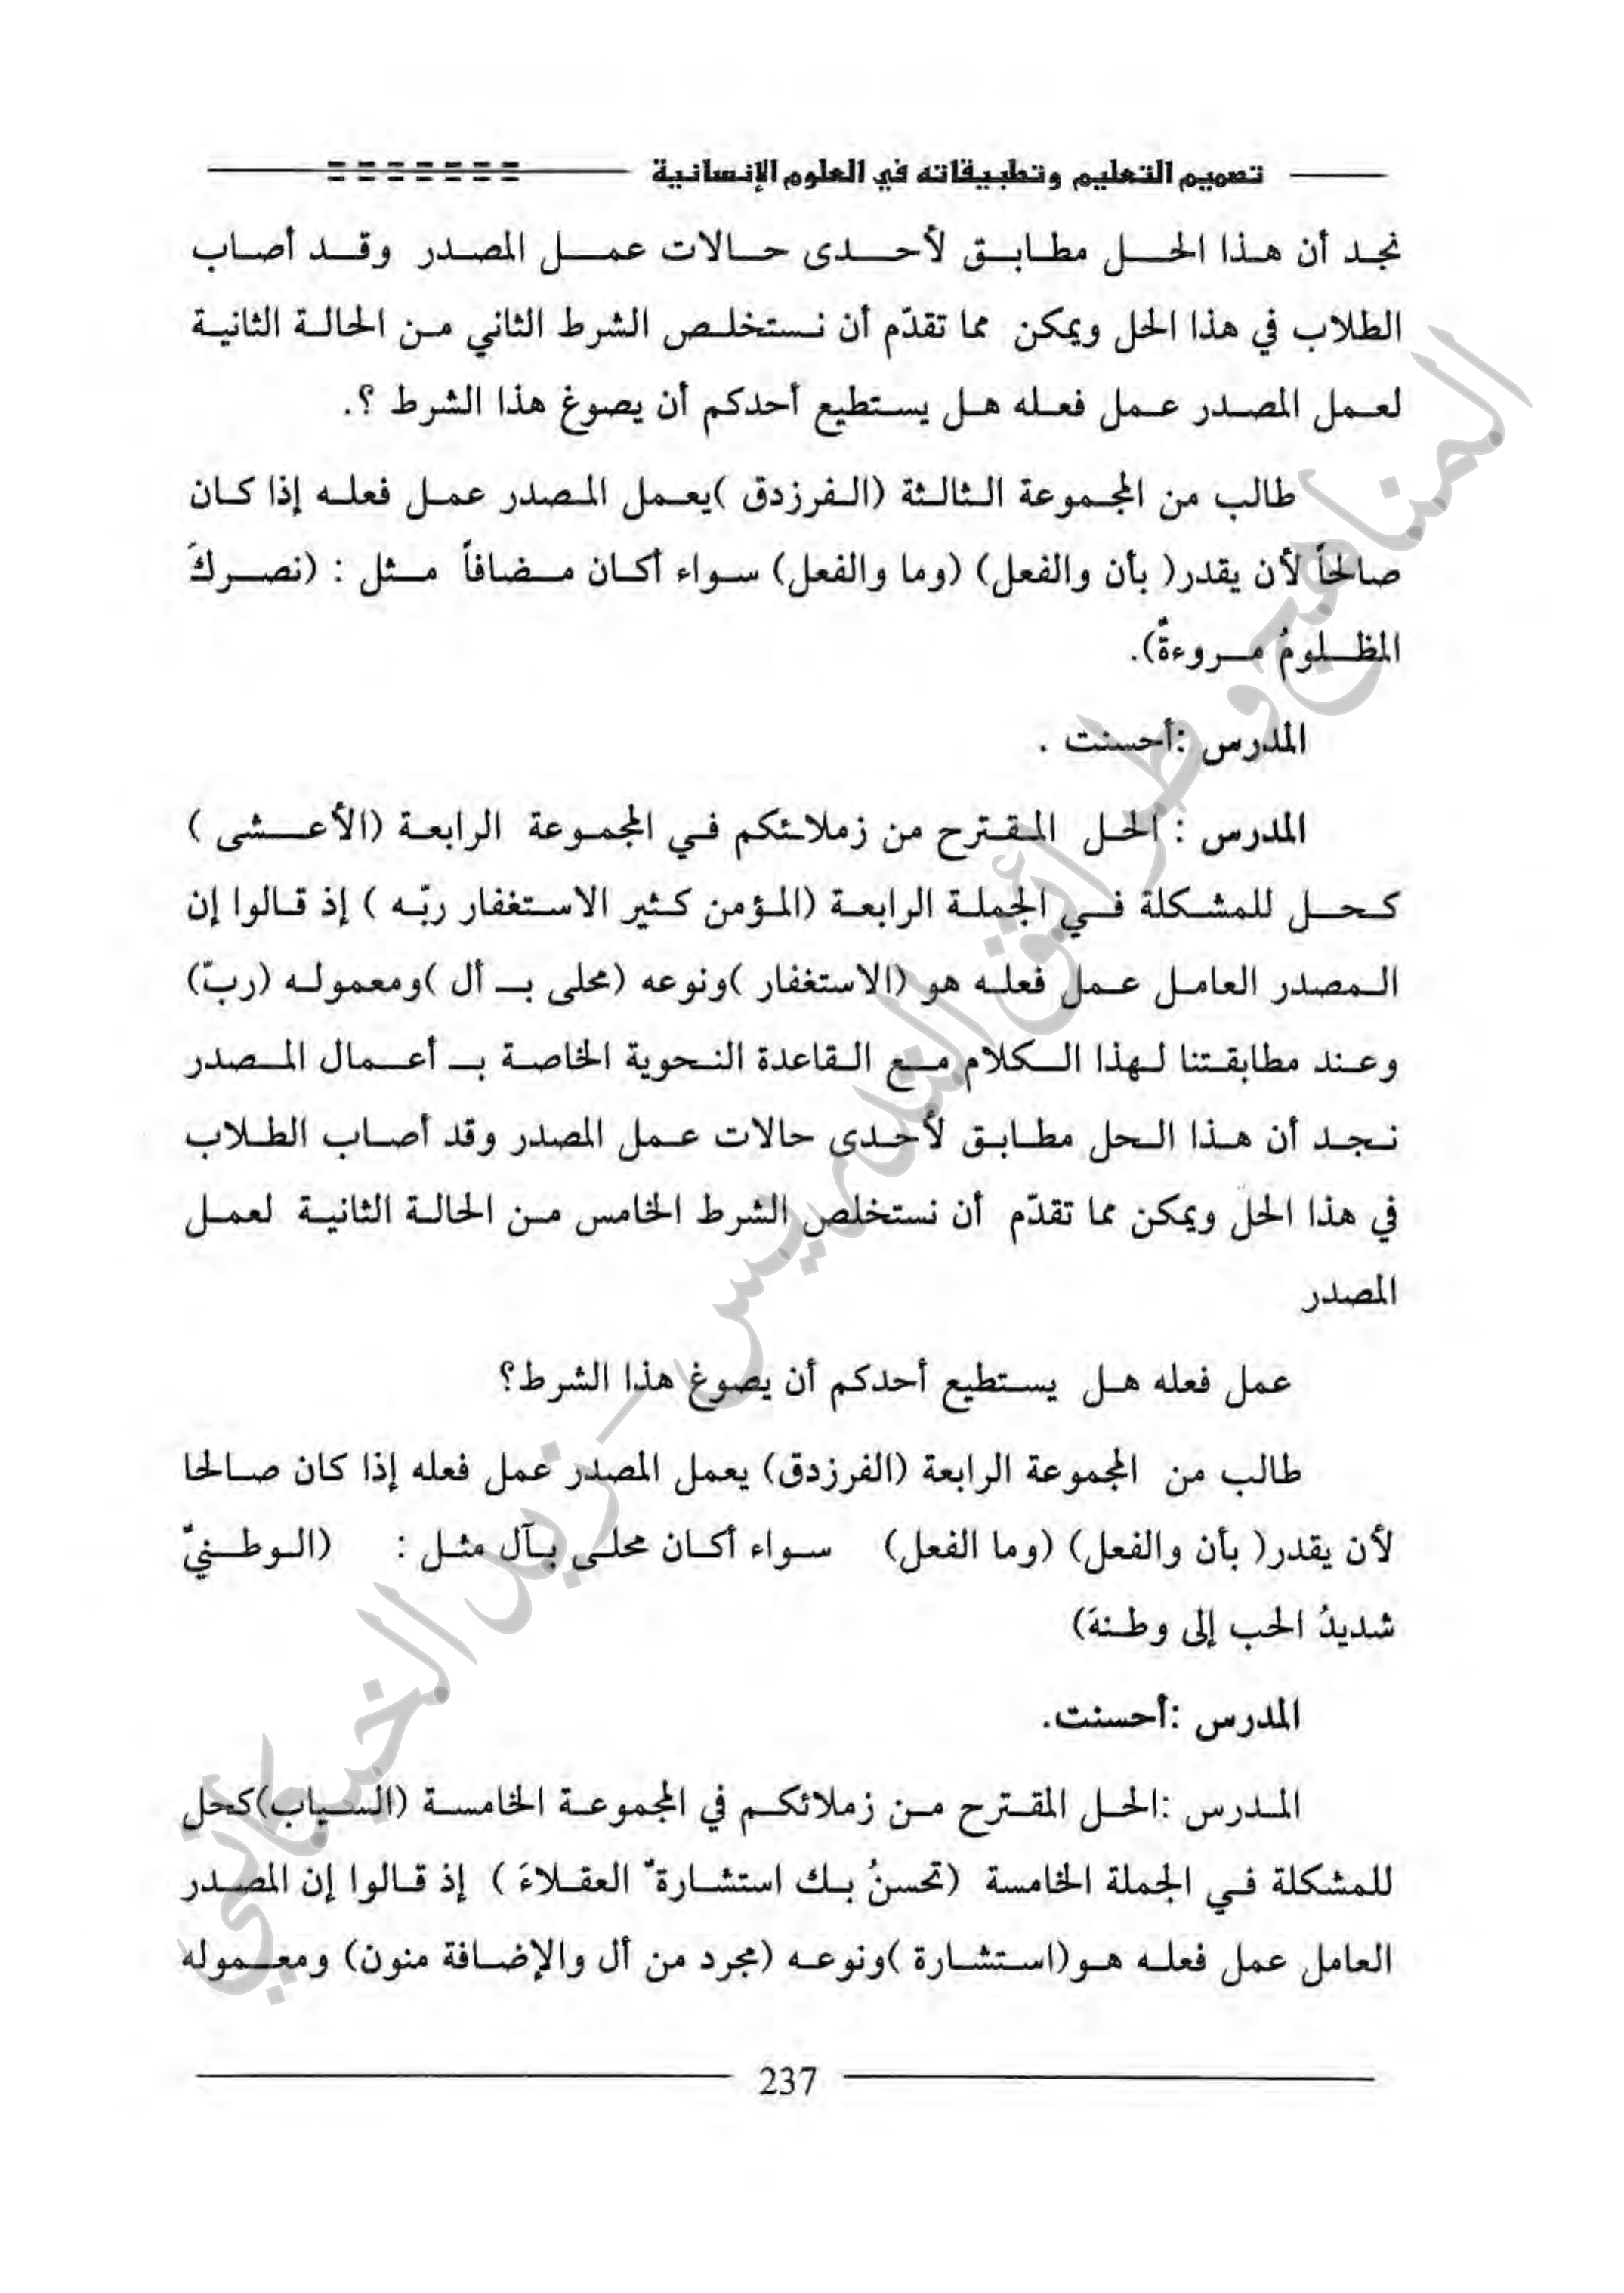 تصميم التعليم وتطبيقاته في العلوم الإنسانية
نجد أن هذا الحل مطابق لأحدى حالات عمل المصدر وقد أصاب
الطلاب في هذا الحل ويمكن مما تقدّم أن نستخلص الشرط الثاني من الحالة الثانية
لعمل المصدر عمل فعله هل يستطيع أحدكم أن يصوغ هذا الشرط ؟.
طالب من المجموعة الثالثة (الفرزدق )يعمل المصدر عمل فعله إذا كان
صالحاً لأن يقدر( بأن والفعل) (وما والفعل) سواء أكان مضافاً مثل : (نصركَ
المظلومُ مروءةٌ).
المدرس :أحسنت .
المدرس : الحل المقترح من زملائكم في المجموعة الرابعة (الأعشى )
كحل للمشكلة في الجملة الرابعة (المؤمن كثير الاستغفار ربّه ) إذ قالوا إن
المصدر العامل عمل فعله هو (الاستغفار )ونوعه (محلى بـ أل )ومعموله (ربّ)
وعند مطابقتنا لهذا الكلام مع القاعدة النحوية الخاصة بـ أعمال المصدر
نجد أن هذا الحل مطابق لأحدى حالات عمل المصدر وقد أصاب الطلاب
في هذا الحل ويمكن مما تقدّم أن نستخلص الشرط الخامس من الحالة الثانية لعمل
المصدر
عمل فعله هل يستطيع أحدكم أن يصوغ هذا الشرط؟
طالب من المجموعة الرابعة (الفرزدق) يعمل المصدر عمل فعله إذا كان صالحا
لأن يقدر( بأن والفعل) (وما الفعل) سواء أكان محلى بآل مثل : (الوطنيّ
شديدُ الحب إلى وطنهَ)
المدرس :أحسنت.
المدرس :الحل المقترح من زملائكم في المجموعة الخامسة (السياب)كحل
للمشكلة في الجملة الخامسة (تحسنُ بك استشارةٌ العقلاءَ ) إذ قالوا إن المصدر
العامل عمل فعله هو(استشارة )ونوعه (مجرد من أل والإضافة منون) ومعموله
237
المناهج وطرائق التدريس - زيد الخيكاني